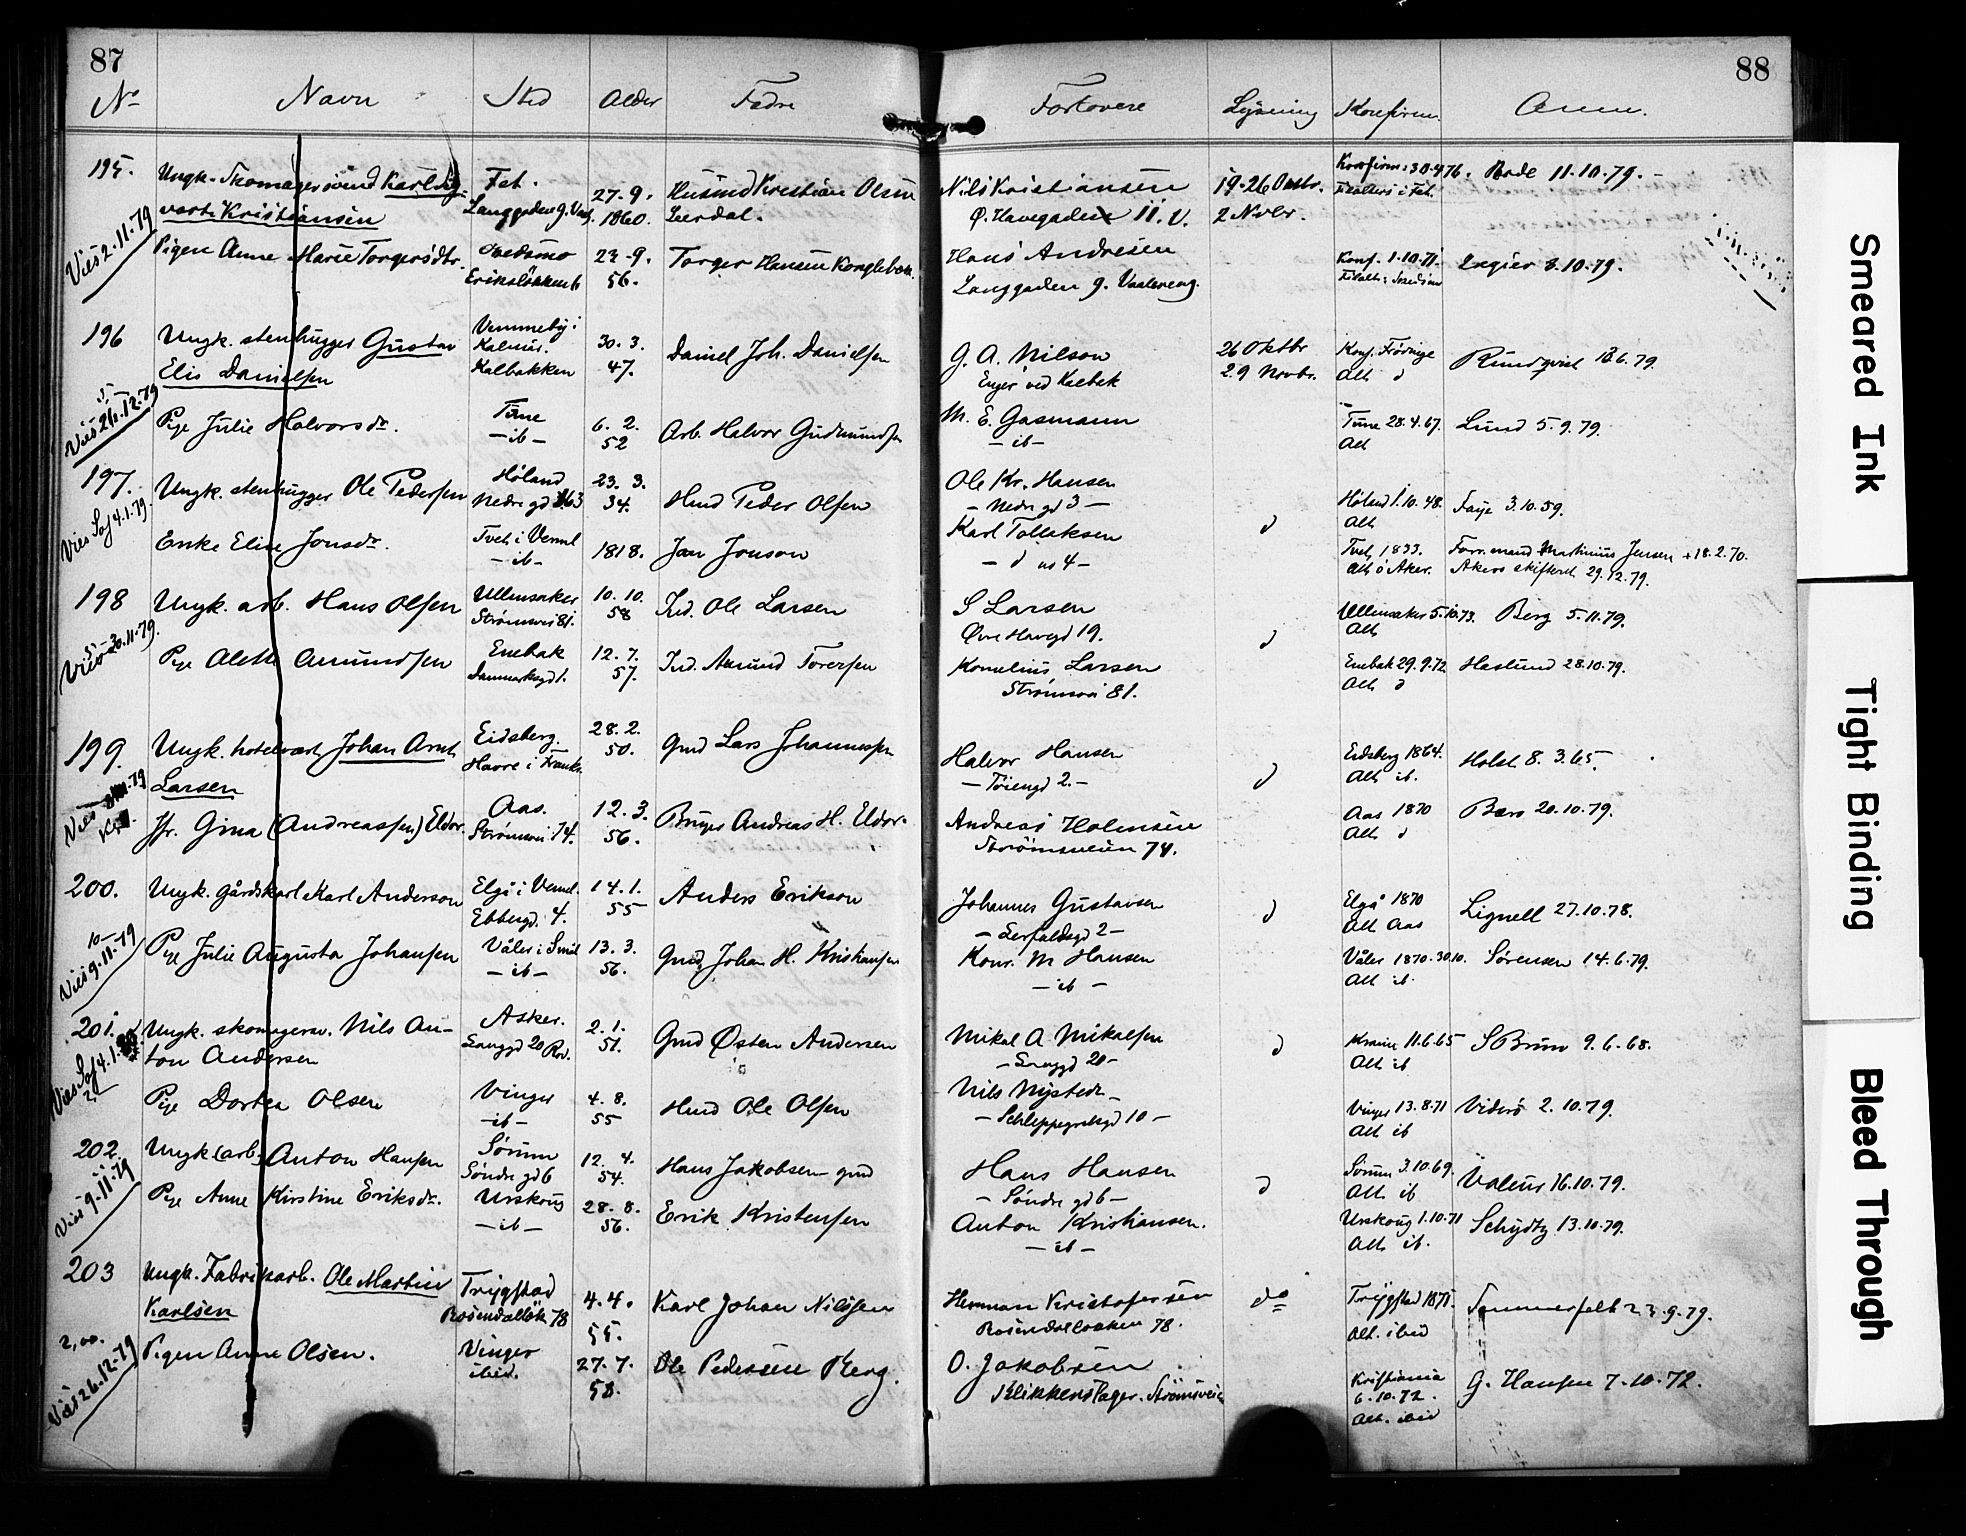 87
88
No Navn Sted Alder Fædre Forlovere Lysning Konfirm. Anm.
195. Ungk. Skomagersvend Karl Sig- Fet. 27-9. Husmd Kristian Olsen Nils Kristiansen 19-26 Oktbr. Konfirm: 30-4 76. Bode 11-10-79.
vart Kristiansen Langgaden 9. 1860. Leerdal. Ø. Havegaden 11. V. 2 Novbr. i Fet.
Vies 2-11-79
Pigen Anne Marie Torgersdtr. Skedsmo 23-9. Torger Hansen Hans Andresen Konf. 1-10-71.
56. Langgaden 9. Vaalereng. 3-10-79.
196 Ungk. stenhugger Gustav Kalmar. 30. 3. Daniel Joh. Danielsen G. A. Nilson 26 Oktbr Konf. Rundqvist 18.6.79.
Elis Danielsen Kalbakken 47. Enger ved Kalbak 29 Novbr. Alt. d
Vies 26-12-79
Pige Julie Halvorsdr. Tune 6. 2. Arb. Halvor Gudmundsen M. E. Gasmann Tune 28.4.67. Lund 5-9.79.
- ib - 52 - ib - Alt
197. Ungk. stenhugger Ole Pedersen Høland 23. 3. Hmd Peder Olsen Ole Kr. Hansen Høland 1.10.48. Faye 3.10.59.
Nedre gd 34. - Nedre gd 3 - d Alt
Vies 4.1.79.
Enke Elise Jonsdr. i Verml 1818. Jan Jonson Karl Tollaksen 1833. Forr. mand Martinius Jensen + 18.2.70.
- ib - - d no 4 - Alt. o Aker. Akers skifteret 29.12.79.
198 Ungk. arb. Hans Olsen Ullensaker 10. 10. Ind. Ole Larsen S Larsen Ullensaker 5.10.73. Berg 5.11.79.
Strømsvei 81. 58 Øvre Havegd 19. d Alt
Vies 30.11.79.
Pige Alette Amundsen Enebak 12. 7. Ind. Amund Toresen Kornelius Larsen Enebak 29.9.72 Haslund 28.10.79.
Danmarksgd 1. 57. Strømsvei 81. Alt d
199. Ungk. hotelvært Johan Arnt Eidsberg. 28. 2. Gmd Lars Johannessen Halvor Hansen Eidsberg 1864. Holst 8. 3.65.
Larsen Havre i Frankr. 50. - Tøiengd 2. - d Alt ib.
Jfr. Gina (Andreassen) Eldor. Aas. 12. 3. Bruger Andreas H. Eldor. Andreas Holmsen Aas 1870 Bars 20.10.79.
Strømsvei 74. 56. Strømsveien 74. Alt d
200. Ungk. gårdskarl Karl Anderson Elgå i Verml. 14. 1. Anders Erikson Johannes Gustavsen Elgå 1870 Lignell 27.10.78.
Ebbegd. 4. 55 - 2 - d Alt Aas
Vies 9.11.79
Pige Julie Augusta Johansen Våler i Smål 13. 3. Gmd Johan H. Kristiansen Konr. M Hansen Våler 1870.30.10. Sørensen 14.6.79.
- ib - 56. - ib - Alt ib.
201. Ungk. skomagersv. Nils An- Asker. 2. 1. Gmd Østen Andersen Mikal A. Mikalsen 11.6.65 S Bruun 9.6.68.
ton Andersen Langgd 20 51. - Langgd 20 - d Alt ib
Pige Dortea Olsen Vinger 4. 8. Hmd Ole Olsen Nils Nystedt Vinger 13.8.71 Viderö 2.10.79.
- ib - 55 - Schleppegrelsgd 10 - Alt ib
202. Ungk (arb.) Anton Hansen Sørum 12. 4. Hans Jakobsen gmd Hans Hansen Sørum 3.10.69. Valeur 16.10.79.
Søndre gd 6 54. - Søndre gd 6 - d Alt ib
Vies 9-11-79
Pige Anne Kirstine Eriksdr. Urskoug 28. 8. Erik Kristensen Anton Kristiansen. Urskoug 1.10.71 Schydtz 13.10.79.
- ib - 56. - ib - Alt ib.
203 Ungk. Fabrikarb. Ole Martin Trygstad 4-4. Karl Johan Nilssen Herman Kristofersen do Trygstad 1871. Sommerfelt 23-9-79.
Karlsen Rosendalløk 78 55. Rosendalløkken 78. Alt. ibid
2,00.
Vies 26-12-79
Pigen Anne Olsen. Vinger 27-7. Ole Pedersen Berg. O. Jakobsen Kristiania G. Hansen 7-10-72.
ibid. 58. Blikkenslager. Strømsveien 6-10-72.
Alt. ibid
Smeared Ink
Tight Binding
Bleed Through